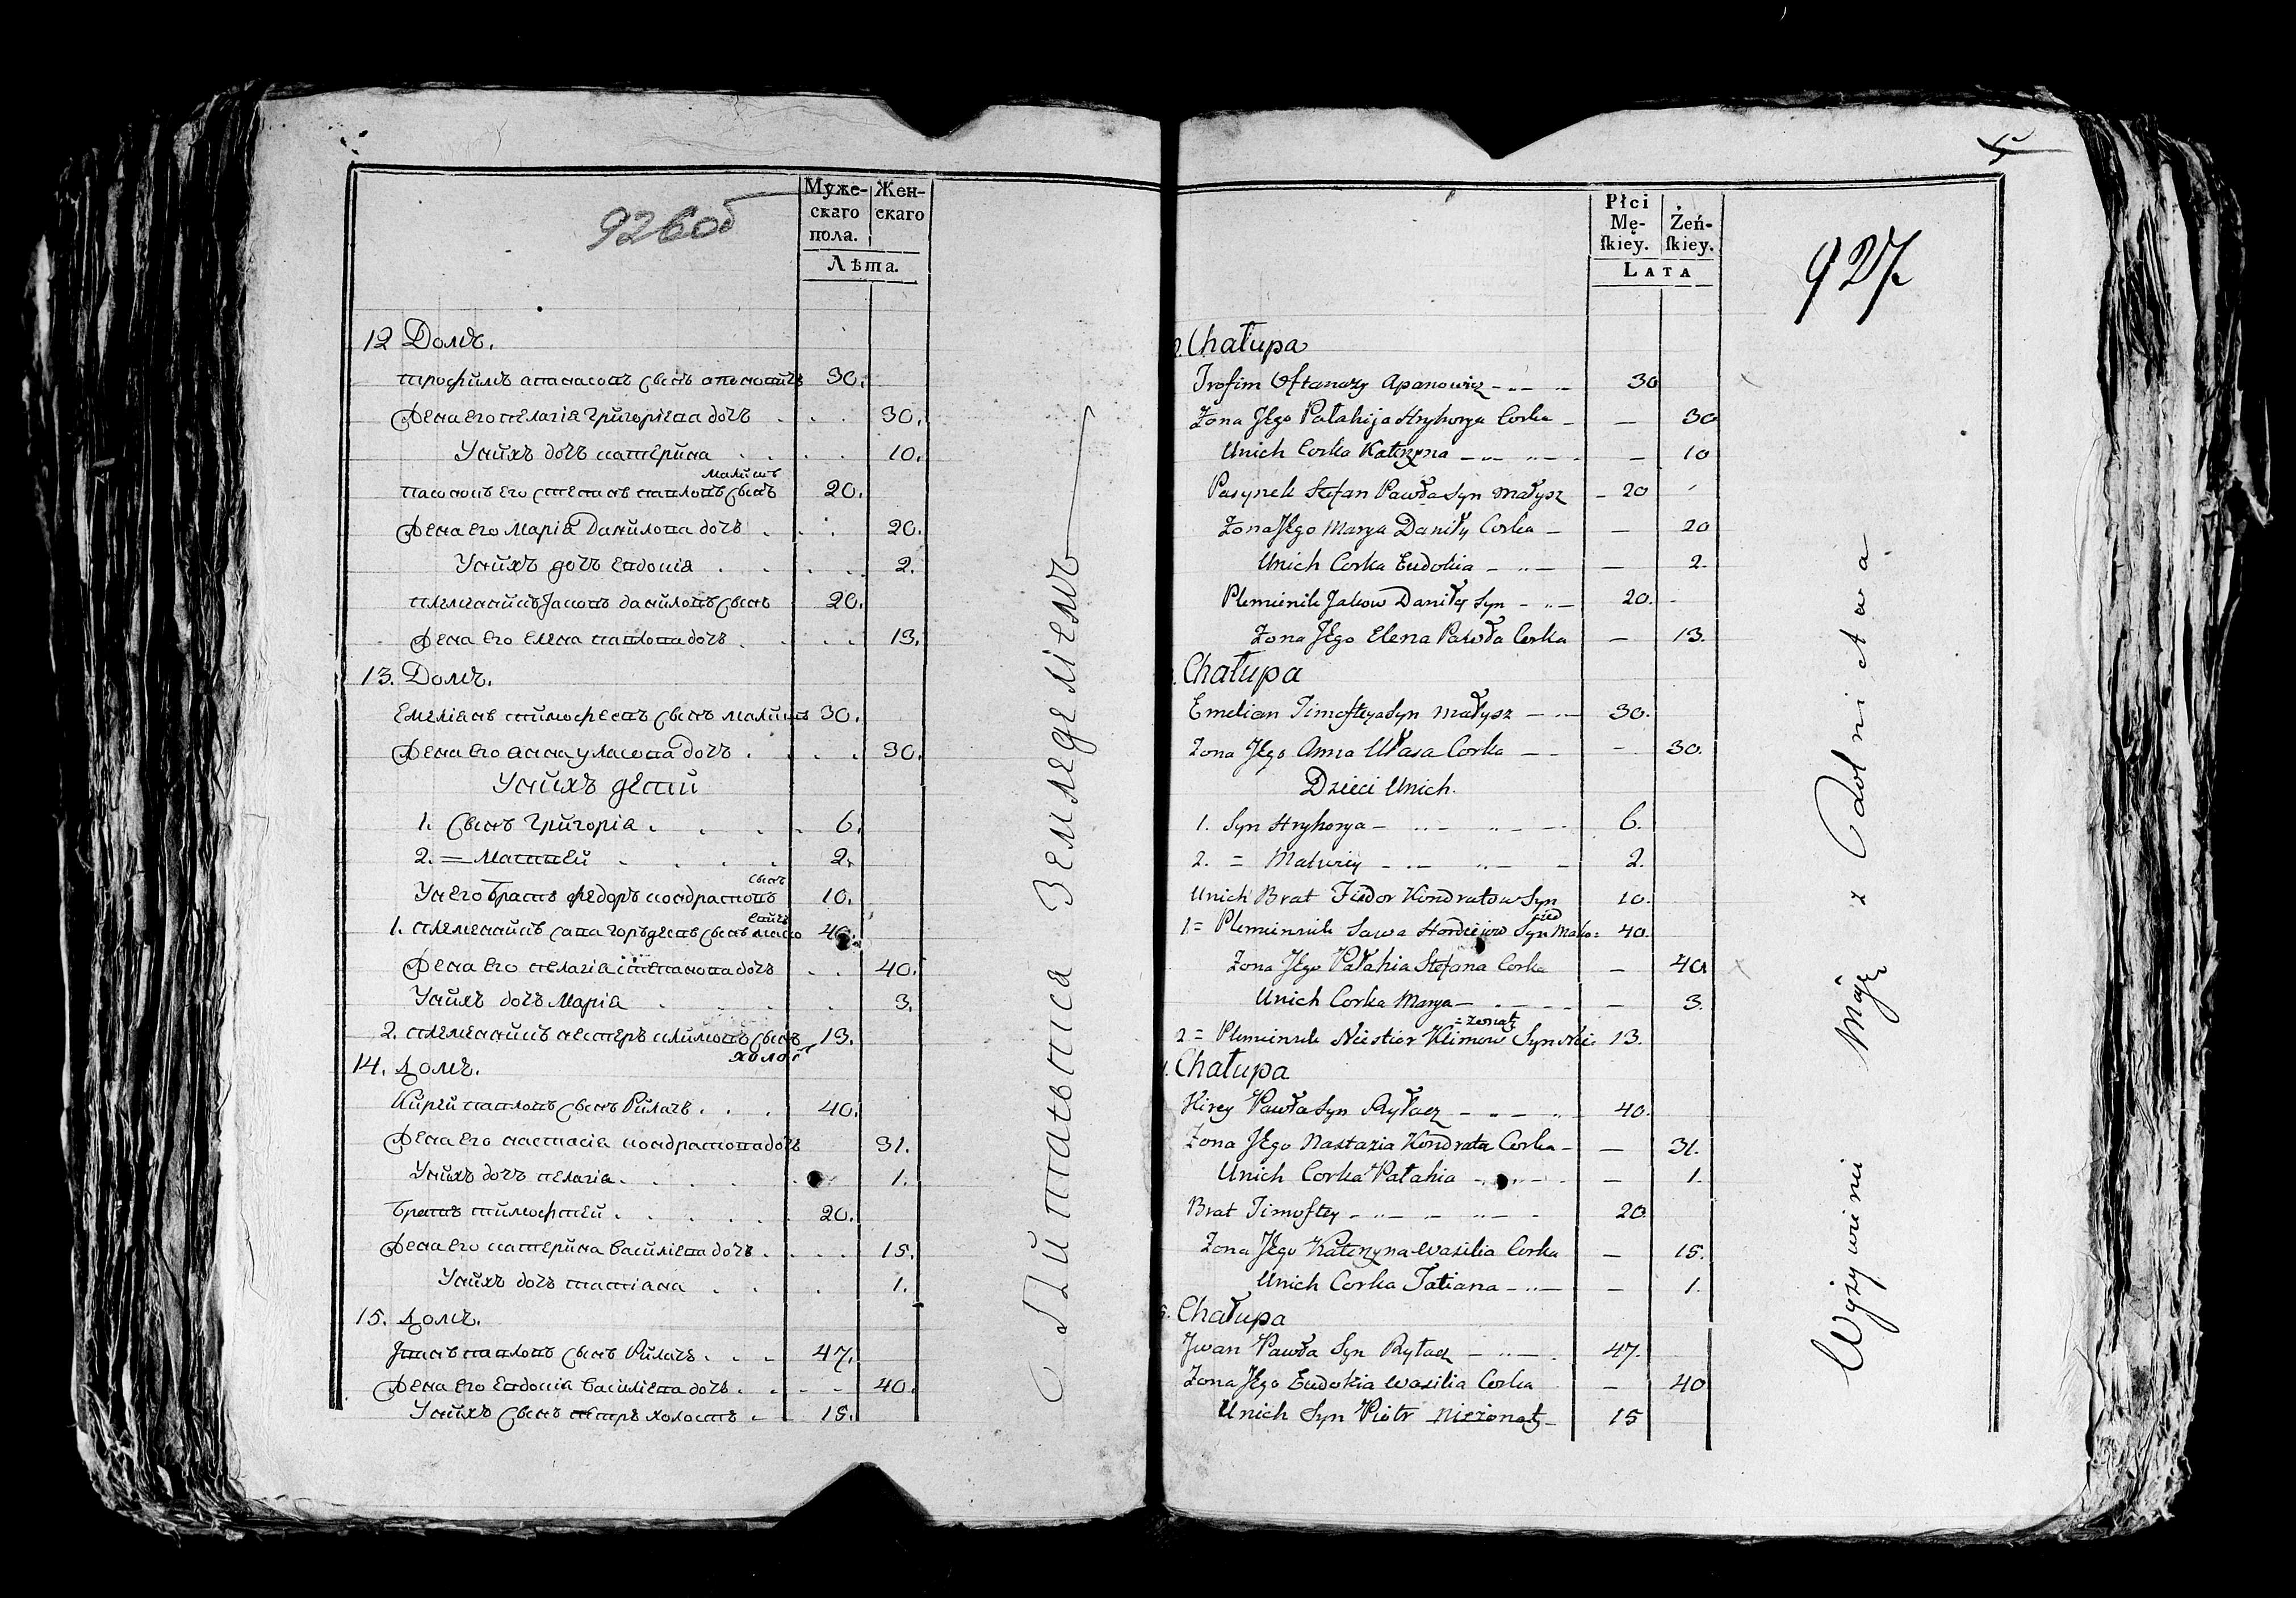 926 об
Муже-
скаго
пола.
Жен-
скаго
Лѣта.
12 Домъ.
трофимъ апанасовъ сынъ апановичъ 30.
Жена его пелагія григоріева дочь . . . 30.
Унихъ дочь катерина . . . 10.
малишъ
пасынокъ его степанъ павловъ сынъ 20.
Жена его Марія Данилова дочь . . . 20.
Унихъ дочь евдокія . . . 2.
племенникъ Jаковъ даниловъ сынъ 20.
Жена его елена павлова дочь . . . 13.
13. Домъ.
Емеліанъ тимофеевъ сынъ малишъ 30.
Жена его анна уласова дочь . . . 30.
Унихъ дети
1. сынъ григорія . . . 6.
2. = Матвей . . . 2.
сынъ
Унего братъ федоръ кондратовъ 10.
1. племенникъ сава горъдеевъ сынъ 40.
Жена его пелагія степанова дочь . . 40.
Унихъ дочь Марія . . . 3.
2. племенникъ нестеръ климовъ сынъ 13.
холос
14. домъ.
Кирей павловъ сынъ Рилачъ . . . 40.
Жена его настасія кондратова дочь 31.
Унихъ дочь пелагія . . . 1.
братъ тимофтей . . . 20.
Жена его катерина василіева дочь . . . 15.
Унихъ дочь татіана . . . 1.
15. домъ.
Jванъ павловъ сынъ Рилачъ . . . 47.
Жена его евдокія василіева дочь . . . 40.
Унихъ сынъ петръ холостъ . 15.
Питаются Земледеліемъ
Płci
Mę-
ſkiey.
Żeń-
ſkiey.
LATA
927
Chałupa
Trofim Aftanazy Apanowicz 30
Zona Jego Pałahija Hryhorya Corka — 30
Unich Corka Katerzyna — 10
Pasynek Stefan Pawła Syn Małysz — 20
Zona Jego Marya Daniły Corka — 20
Unich Corka Eudokia — 2.
Plemienik Jakow Daniły Syn — 20.
Zona Jego Elena Pawła Corka — 13.
Chałupa
Emelian Timofteya Syn Małysz — 30.
Zona Jego Anna Ułasa Corka — 30.
Dzieci Unich.
1. Syn Hryhorya — 6.
2. = Matwiey — 2.
Unich Brat Fiedor Kondratow Syn 10.
1 = Plemiennik Sawa Hordiejow Syn 40.
Zona Jego Pałahia Stefana Corka — 40
Unich Corka Marya — 3.
= zonaty
2 = Plemiennik Niestior Klimow Syn Nie: 13.
Chałupa
Kirey Pawła Syn Ryłacz — 40.
Zona Jego Nastazia Kondrata Corka — 31.
Unich Corka Pałahia — 1.
Brat Timoftey — 20
Zona Jego Katerzyna Wasilia Corka — 15.
Unich Corka Tatiana — 1.
Chałupa
Jwan Pawła Syn Ryłacz — 47.
Zona Jego Eudokia Wasilia Corka — 40
Unich Syn Piotr Niezonaty — 15
Wyżywieni Mają z Rolnictwa